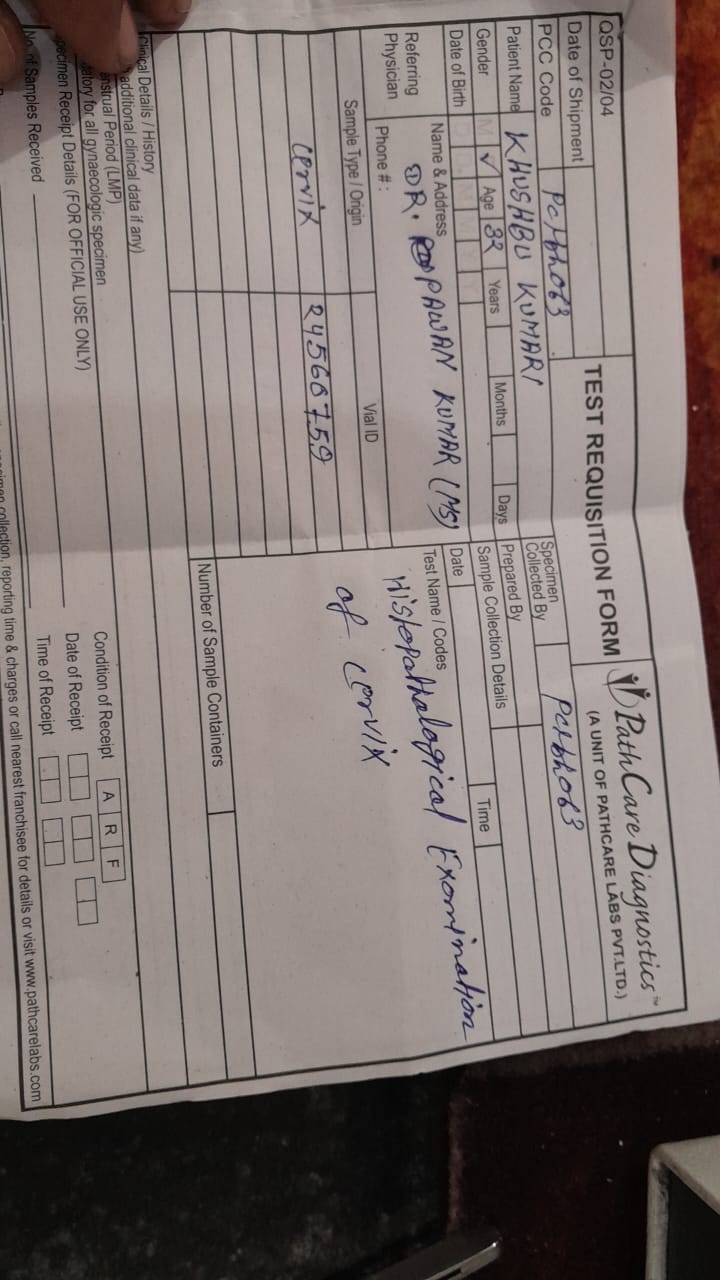 QSP-02/04
TEST REQUISITION FORM
PathCare Diagnostics™
(A UNIT OF PATHCARE LABS PVT.LTD.)
Date of Shipment
PCC Code
Specimen Collected By
Patient Name KHUSHBU KUMARI
Prepared By
Gender M ✓ Age 32 Years Months Days
Sample Collection Details
Date of Birth D D M M Y Y
Date Time
Referring Physician
Name & Address
DR. PAWAN KUMAR (MS)
Phone # :
Test Name / Codes
Histopathological Examination
of Cervix
Sample Type / Origin Vial ID
Cervix 24568759
Number of Sample Containers
Clinical Details / History
additional clinical data if any)
Period (LMP)
for all gynaecologic specimen
Receipt Details (FOR OFFICIAL USE ONLY)
No. of Samples Received
Condition of Receipt A R F
Date of Receipt
Time of Receipt
collection, reporting time & charges or call nearest franchisee for details or visit www.pathcarelabs.com